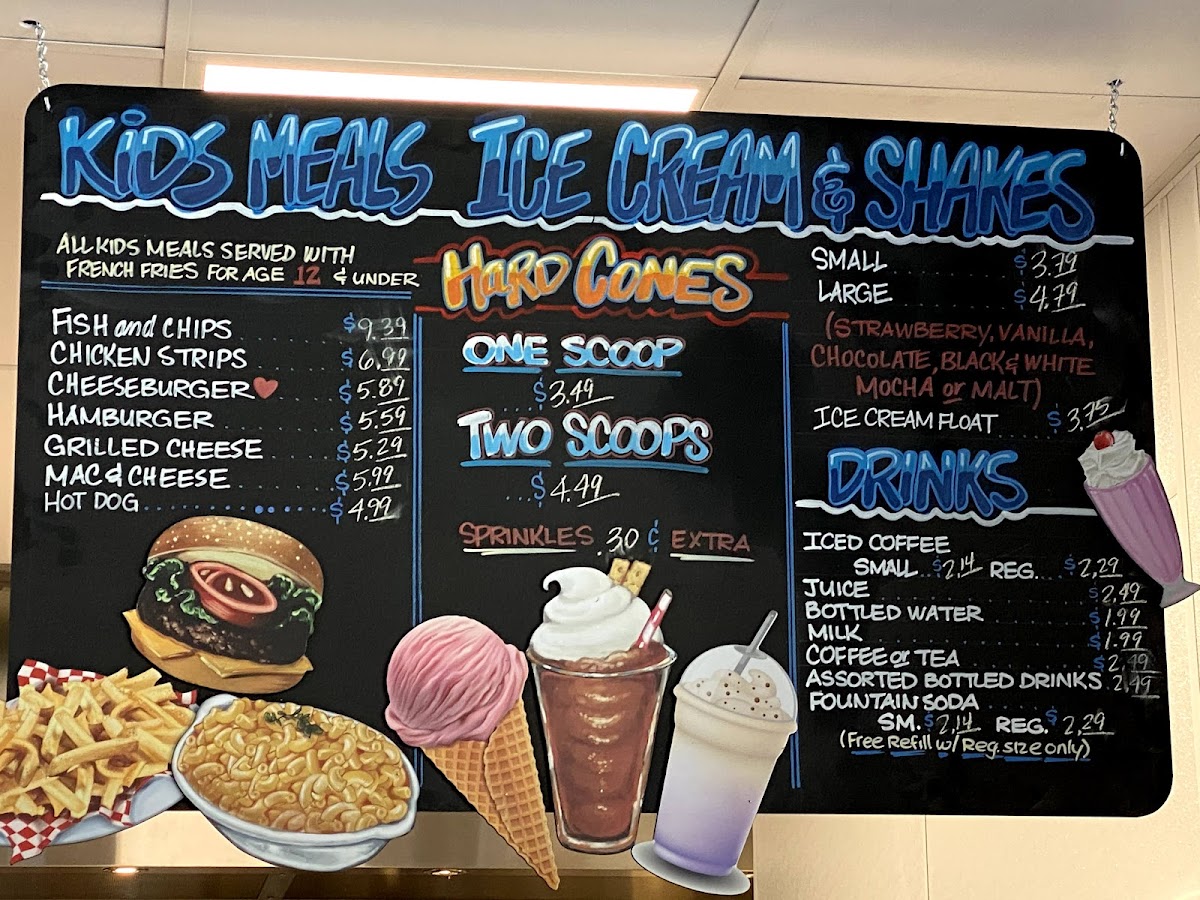 KiDS MEALS ICE CREAM & SHAKES
ALL KIDS MEALS SERVED WITH
FRENCH FRIES FOR AGE 12 & UNDER
FISH and CHIPS $9.39
CHICKEN STRIPS $6.99
CHEESEBURGER♥ $5.89
HAMBURGER $5.59
GRILLED CHEESE $5.29
MAC & CHEESE $5.99
HOT DOG $4.99
HARD CONES
ONE SCOOP
$3.49
TWO SCOOPS
$4.49
SPRINKLES .30¢ EXTRA
SMALL $3.79
LARGE $4.79
(STRAWBERRY, VANILLA,
CHOCOLATE, BLACK & WHITE
MOCHA or MALT)
ICE CREAM FLOAT $3.75
DRINKS
ICED COFFEE
SMALL $2.14 REG. $2.29
JUICE $2.49
BOTTLED WATER $1.99
MILK $1.99
COFFEE or TEA $2.49
ASSORTED BOTTLED DRINKS 2.49
FOUNTAIN SODA
SM. $2.14 REG. $2.29
(Free Refill w/ Reg. size only)